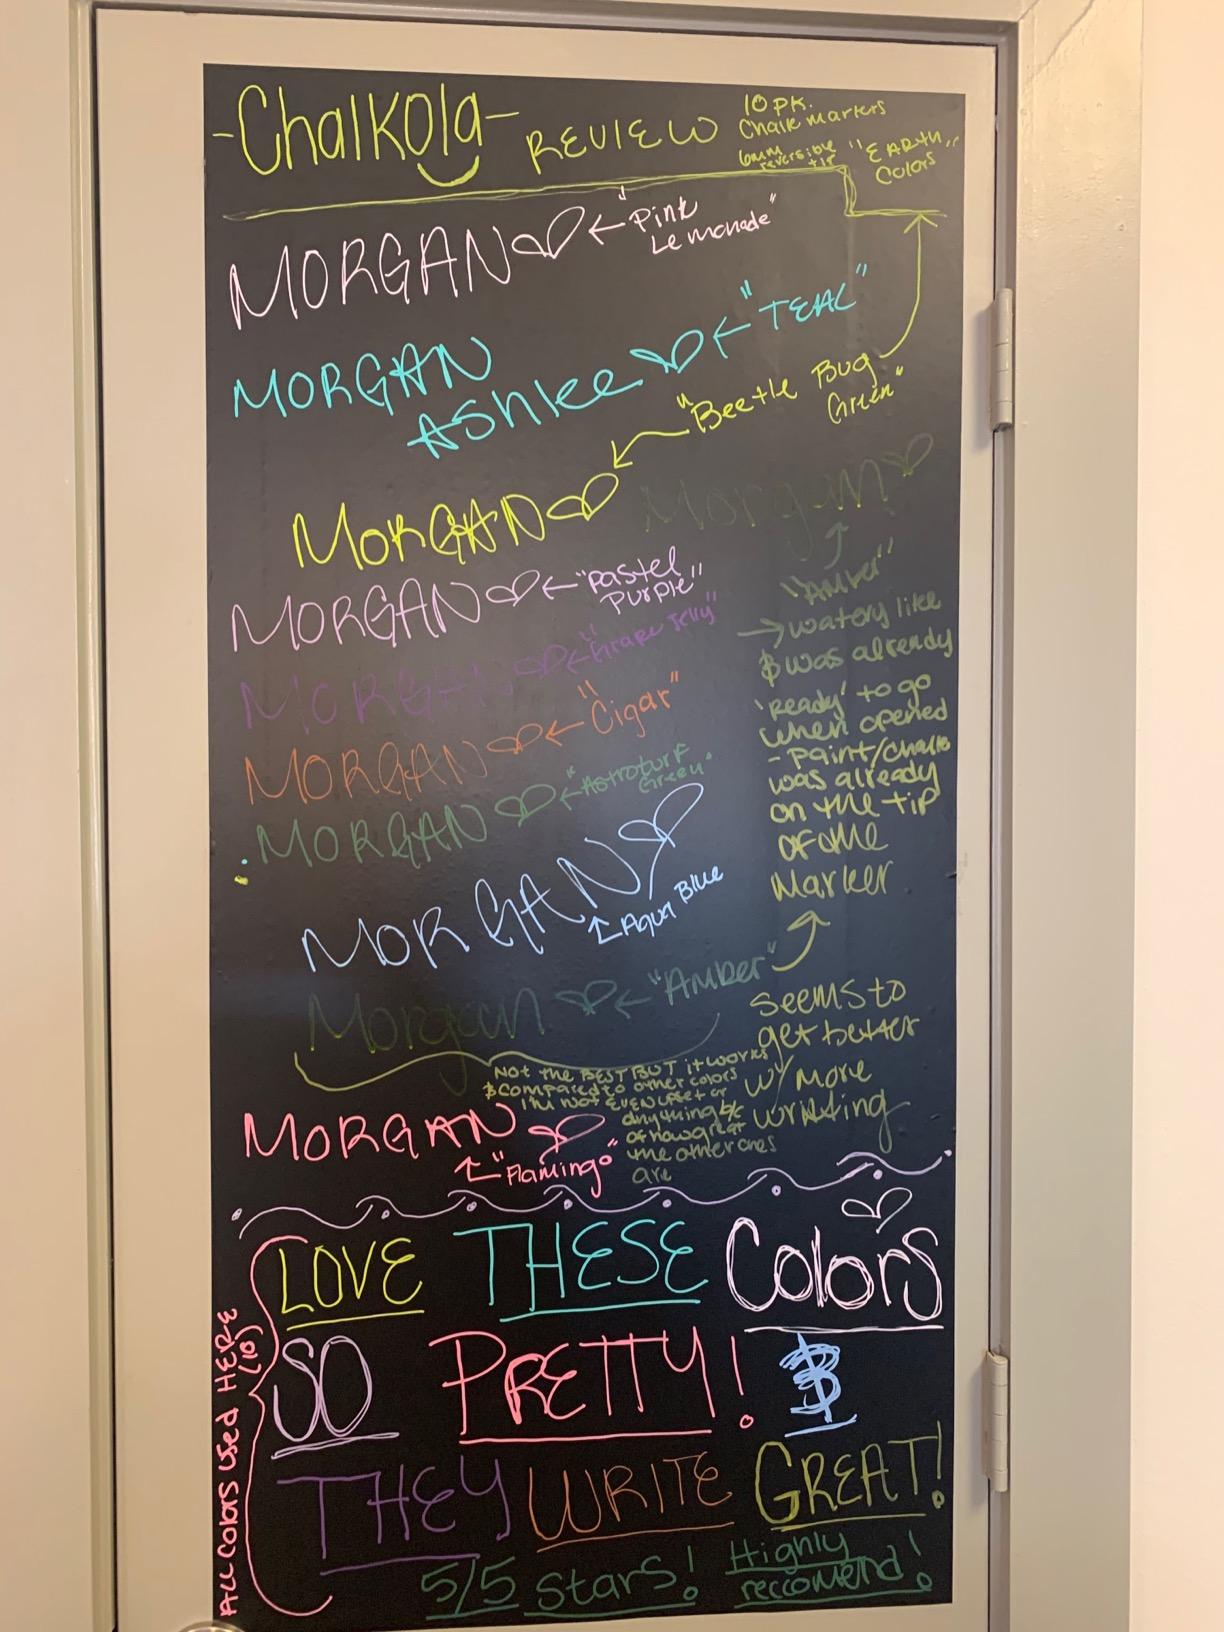 -Chalkola- REVIEW
10 pk.
Chalk markers
6mm reversible tip
"EARTH"
Colors
MORGAN ← "Pink
Lemonade"
MORGAN
Ashlee ← "TEAL"
"Beetle Bug
Green"
MORGAN
Morgan
"Amber"
MORGAN ← "Pastel
Purple"
MORGAN ← "Grape Jelly"
MORGAN ← "Cigar"
MORGAN ← "Astroturf
Green"
MORGAN
Aqua Blue
→ watery like
& was already
'ready' to go
when opened
- Paint/chalk
was already
on the tip
of the
Marker
Morgan ← "Amber"
seems to
get better
w/ more
writing
Not the BEST BUT it works
& compared to other colors
I'm not EVEN upset or
anything b/c
of how great
the other ones
are
MORGAN
"Flamingo"
All Colors Used HERE
(10)
LOVE THESE Colors
SO PRETTY! &
THEY WRITE GREAT!
5/5 Stars! Highly
reccomend!